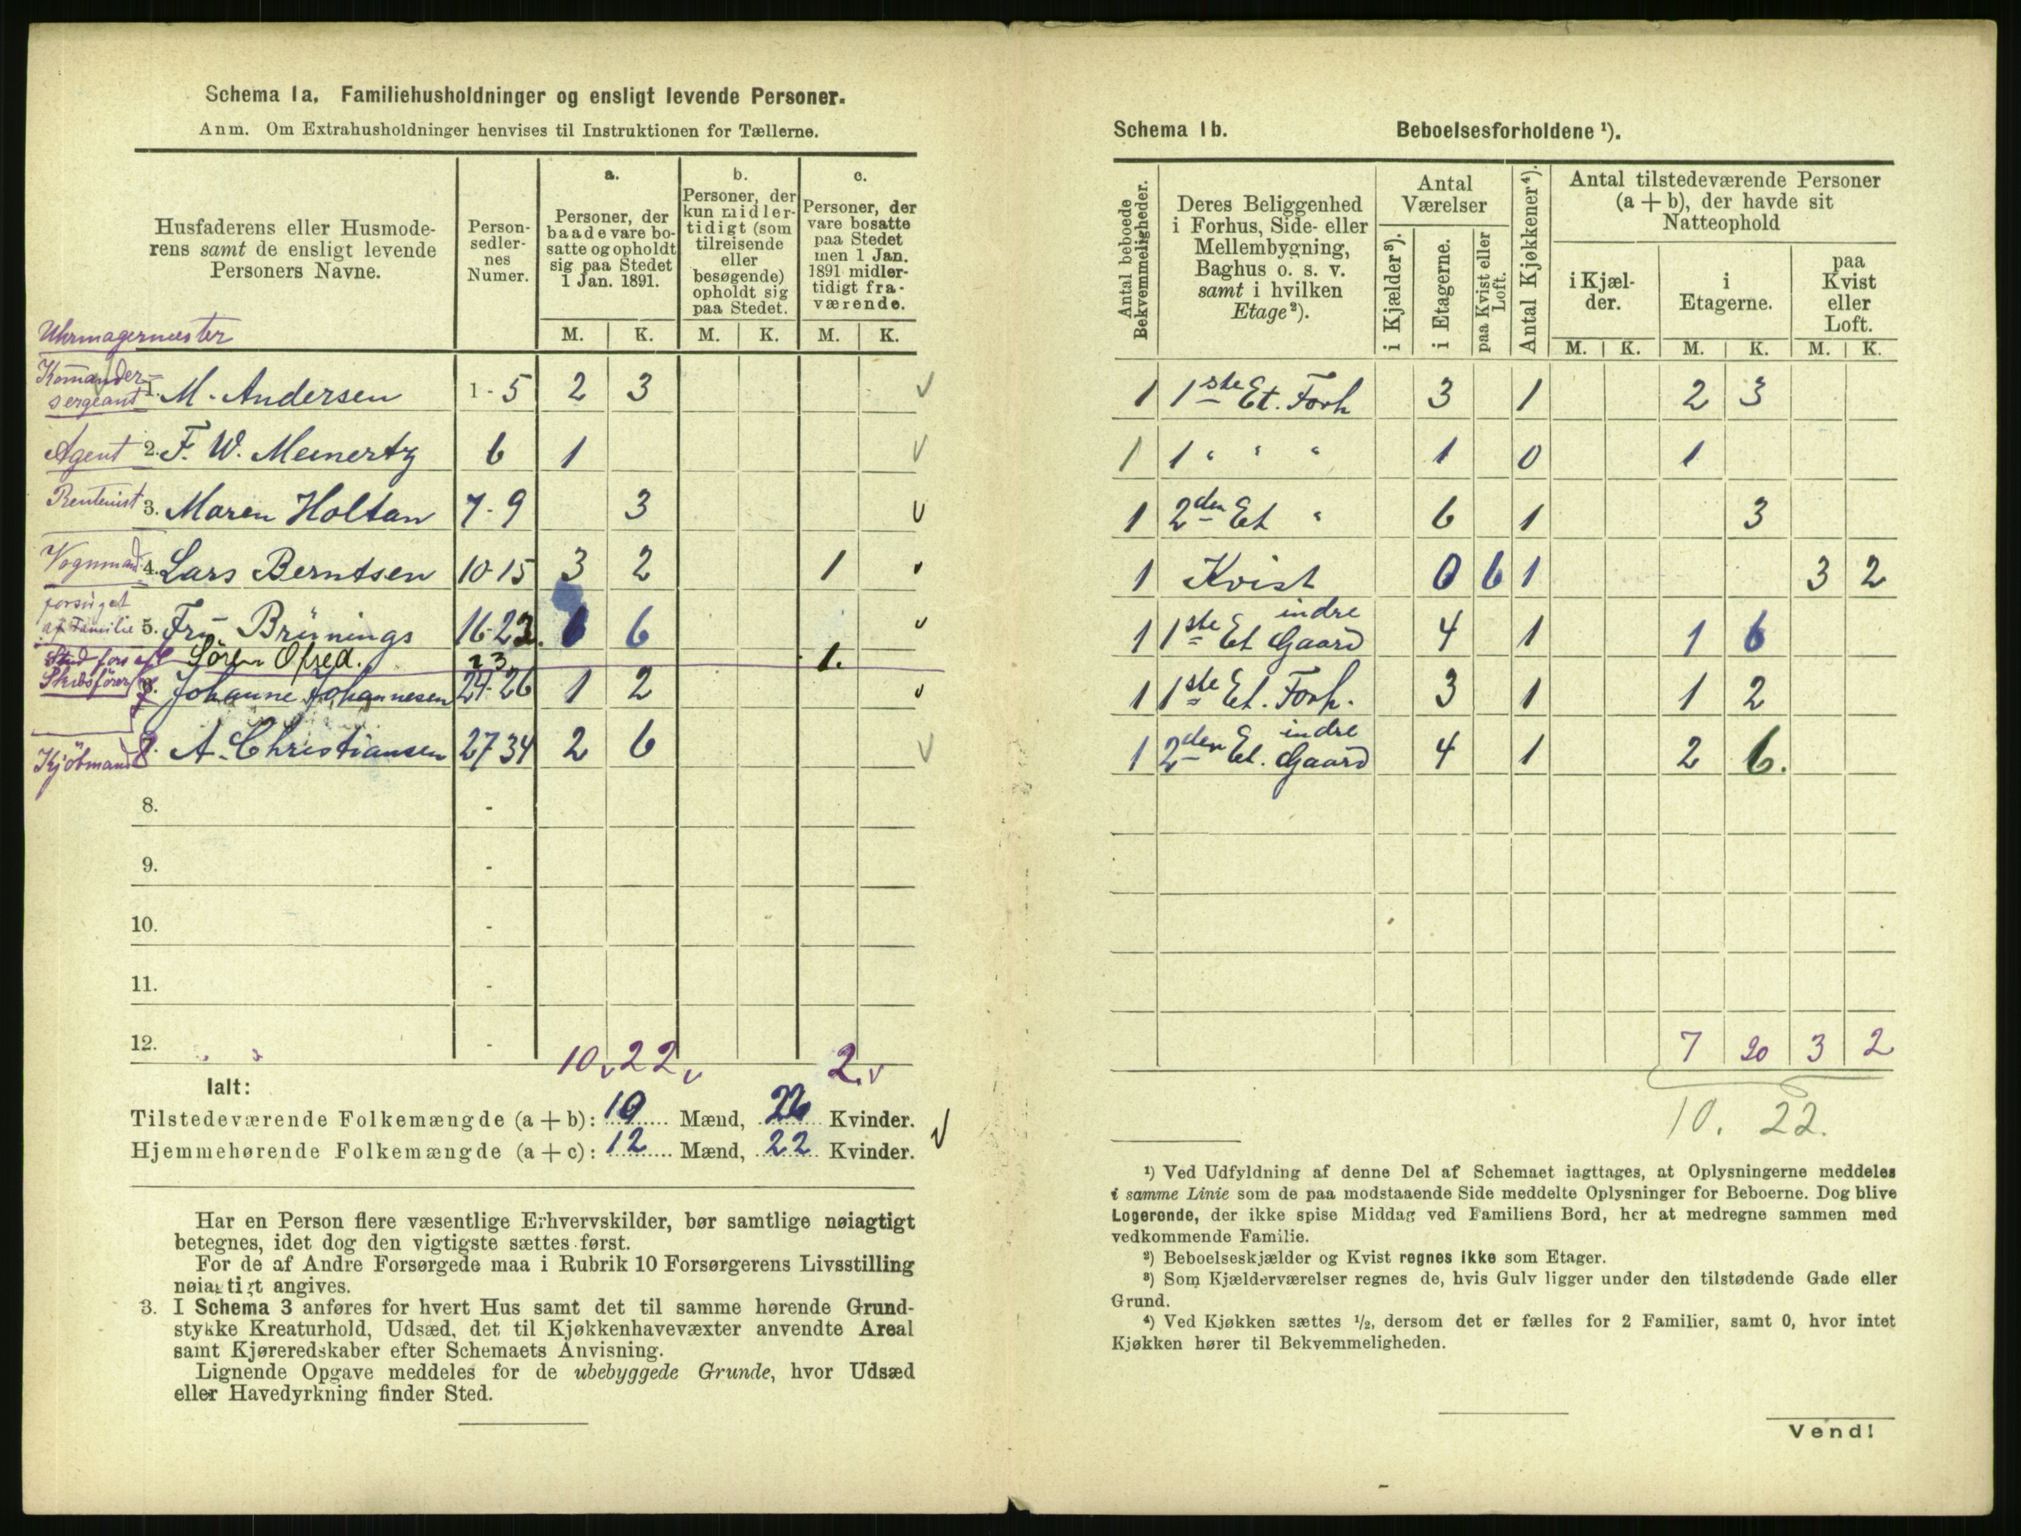 Schema 1a. Familiehusholdninger og ensligt levende Personer.
Anm. Om Extrahusholdninger henvises til Instruktionen for Tællerne.
Husfaderens eller Husmoderens samt de ensligt levende Personers Navne.
Personsedlernes Numer.
a. Personer, der baade vare bosatte og opholdt sig paa Stedet 1 Jan. 1891.
b. Personer, der kun midlertidigt (som tilreisende eller besøgende) opholdt sig paa Stedet.
c. Personer, der vare bosatte paa Stedet men 1 Jan. 1891 midlertidigt fraværende.
M. K. M. K. M. K.
Uhrmagermester
Komandersergeant 1. M. Andersen 1-5 2 3 √
Agent 2. F. W. Meinertz 6 1 √
Rentenist 3. Maren Holtan 7-9 3 √
Vognmand 4. Lars Berntsen 10-15 3 2 1 √
forsørget af Familie 5. Fru Brünings 16-22. 6 √
Sören Ofred. 23 1.
Skibsfører Johanne Johannesen 24-26 1 2 √
Kjöbmand A. Christiansen 27 34 2 6 √
8. -
9. -
10. -
11. -
12. -
10 √ 22 √ 2. √
Ialt:
Tilstedeværende Folkemængde (a + b): 10 Mænd, 22 Kvinder.
Hjemmehørende Folkemængde (a + c): 12 Mænd, 22 Kvinder. √
Har en Person flere væsentlige Erhvervskilder, bør samtlige nøiagtigt
betegnes, idet dog den vigtigste sættes først.
For de af Andre Forsørgede maa i Rubrik 10 Forsørgerens Livsstilling
nøiagtigt angives.
3. I Schema 3 anføres for hvert Hus samt det til samme hørende Grund-
stykke Kreaturhold, Udsæd, det til Kjøkkenhavevæxter anvendte Areal
samt Kjøreredskaber efter Schemaets Anvisning.
Lignende Opgave meddeles for de ubebyggede Grunde, hvor Udsæd
eller Havedyrkning finder Sted.
Schema 1b. Beboelsesforholdene ¹).
Antal beboede Bekvemmeligheder.
Deres Beliggenhed i Forhus, Side- eller Mellembygning, Baghus o. s. v. samt i hvilken Etage ²).
Antal Værelser
i Kjælder ³).
i Etagerne.
paa Kvist eller Loft.
Antal Kjøkkener ⁴).
Antal tilstedeværende Personer (a + b), der havde sit Natteophold
i Kjælder.
i Etagerne.
paa Kvist eller Loft.
M. K. M. K. M. K.
1 1ste Et. Forh 3 1 2 3
1 1 " " " 1 0 1
1 2den Et " 6 1 3
1 Kvist 0 6 1 3 2
1 1ste Et indre Gaard 4 1 1 6
1 1ste Et. Forh. 3 1 1 2
1 2den Et. indre Gaard 4 1 2 6.
7 20 3 2
10. 22.
¹) Ved Udfyldning af denne Del af Schemaet iagttages, at Oplysningerne meddeles
i samme Linie som de paa modstaaende Side meddelte Oplysninger for Beboerne. Dog blive
Logerende, der ikke spise Middag ved Familiens Bord, her at medregne sammen med
vedkommende Familie.
²) Beboelseskjælder og Kvist regnes ikke som Etager.
³) Som Kjælderværelser regnes de, hvis Gulv ligger under den tilstødende Gade eller
Grund.
⁴) Ved Kjøkken sættes ½, dersom det er fælles for 2 Familier, samt 0, hvor intet
Kjøkken hører til Bekvemmeligheden.
Vend!